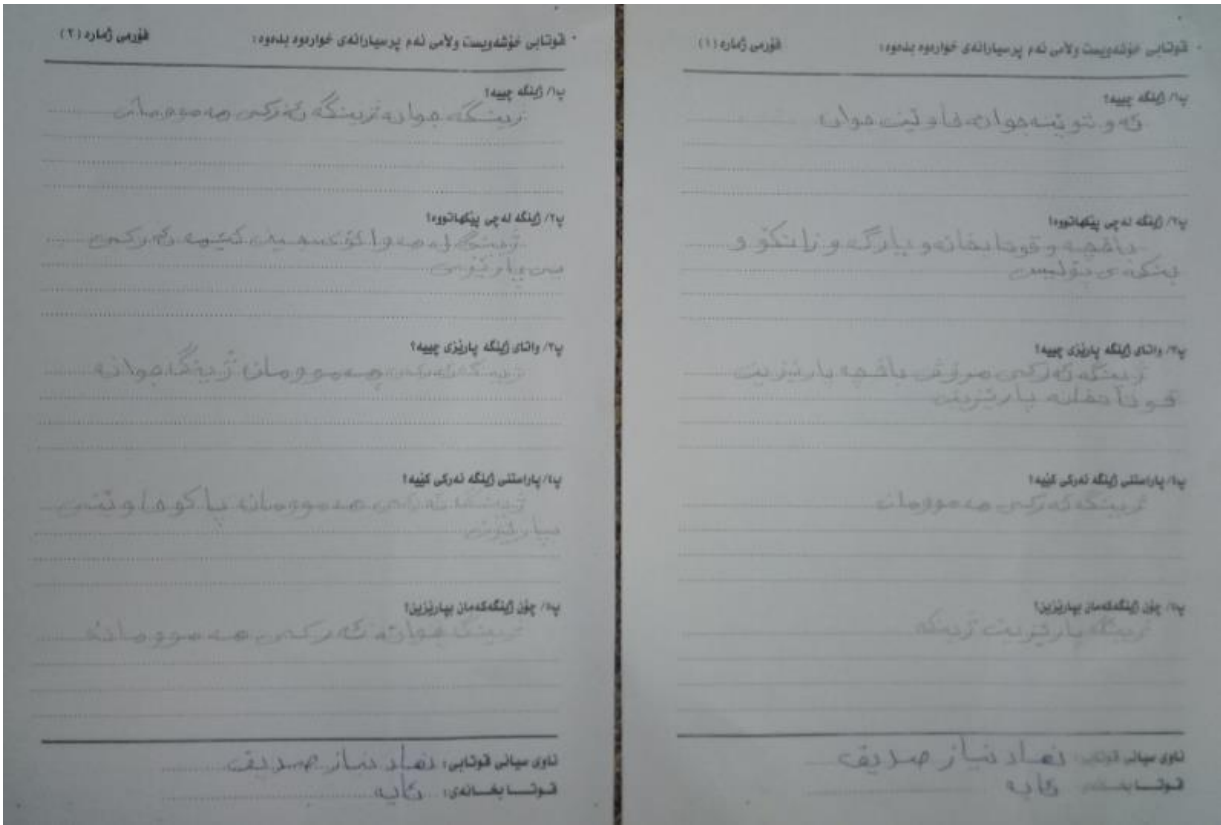 قوتابی خۆشەویست وەڵامی ئەم پرسیارانەی خوارەوە بدەوە:
فۆرمی ژمارە (١)
پ١/ ژینگە چییە؟
ئەو شوێنە جوانە خاوێن جوان
پ٢/ ژینگە لە چی پێکهاتووە؟
باخچە و قوتابخانە و پارک و زانکۆ و
بنکەی پۆلیس
پ٣/ واتای ژینگە پارێزی چییە؟
ژینگە ئەرکی مرۆڤ باخچە پارێزین
قوتابخانە پارێزین
پ٤/ پاراستنی ژینگە ئەرکی کێیە؟
ژینگە ئەرکی هەموومان
پ٥/ چۆن ژینگەکەمان بپارێزین؟
ژینگە پارێزین ژینگە
ناوی سیانی قوتابی: نهاد نیاز صدیق
قوتابخانەی: کابە
قوتابی خۆشەویست وەڵامی ئەم پرسیارانەی خوارەوە بدەوە:
فۆرمی ژمارە (٢)
پ١/ ژینگە چییە؟
ژینگە جوانە ژینگە ئەرکی هەموومان
پ٢/ ژینگە لە چی پێکهاتووە؟
ژینگە لە هەوا ئۆکسجین ئەرکی
پ٣/ واتای ژینگە پارێزی چییە؟
ژینگە ئەرکی هەموومان ژینگ جوانە
پ٤/ پاراستنی ژینگە ئەرکی کێیە؟
ژینگە ئەرکی هەموومان پاک و خاوێنی
بپارێزین
پ٥/ چۆن ژینگەکەمان بپارێزین؟
ژینگ جوانە ئەرکی هەموومانە
ناوی سیانی قوتابی: نهاد نیاز صدیق
قوتابخانەی: کابە